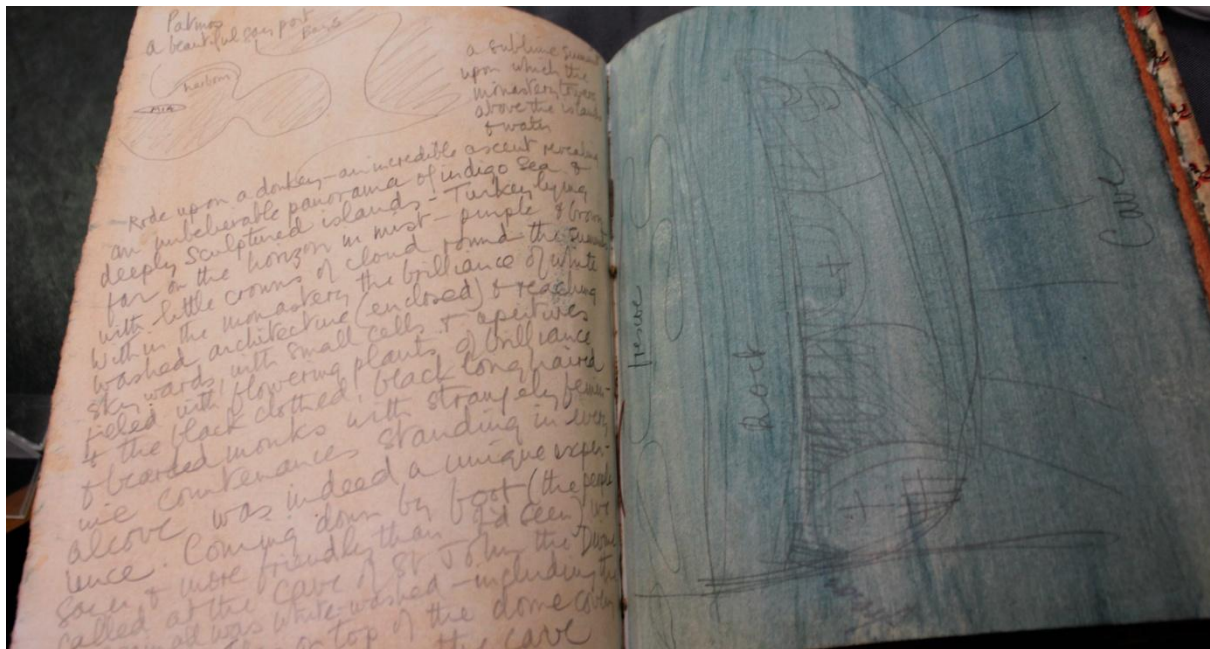 Patmos
a beautiful sea port
harbour
a sublime summit
upon which the
monastery towers
above the island
& water
Rode upon a donkey – an incredible ascent revealing
an unbelievable panorama of indigo sea &
deeply sculptured islands – Turkey lying
far on the horizon in mist – purple & brown
with little crowns of cloud round the summit
Within the monastery the brilliance of white
washed architecture (enclosed) & reaching
skywards, with small cells & apertures
filled with flowering plants of brilliance
& the black clothed, black long haired
& bearded monks with strangely femin-
ine countenances standing in every
alcove was indeed a unique exper-
ience. Coming down by foot (the people
& more friendly than I'd seen) we
called at the cave of St John the Divine
all was white-washed – including the
on top of the dome
the cave
fresco
Rock
Cave